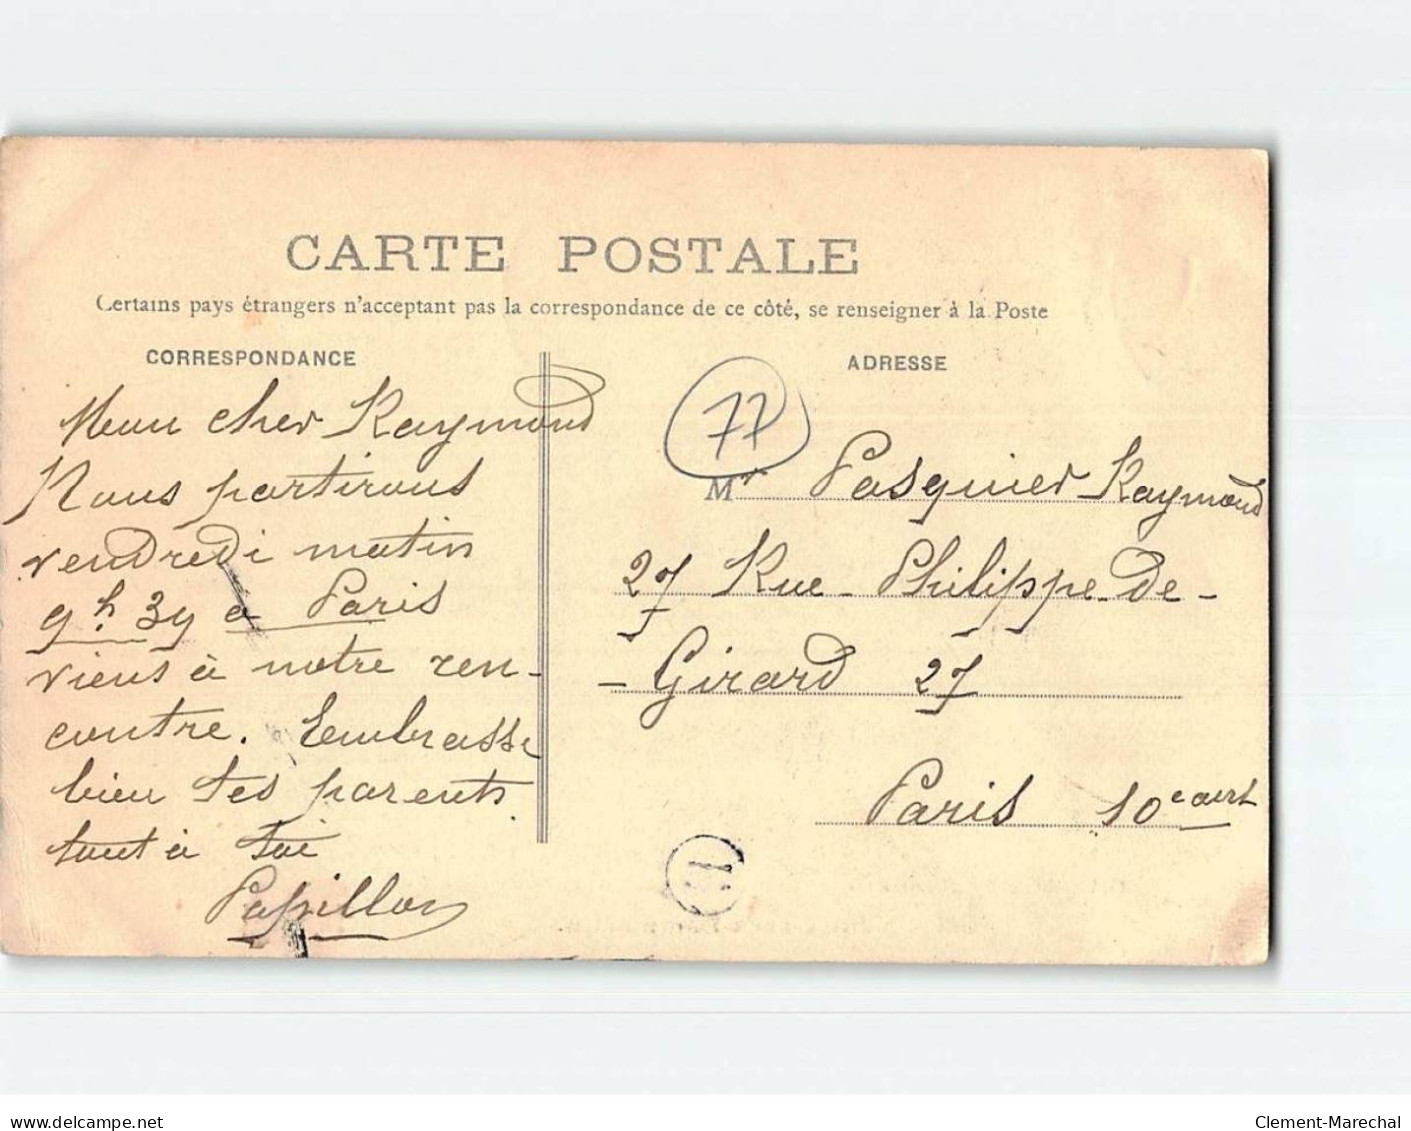 CARTE POSTALE
Certains pays étrangers n'acceptant pas la correspondance de ce côté, se renseigner à la Poste
CORRESPONDANCE
Mon cher Raymond
Nous partirons
vendredi matin
9h 39 à Paris
viens à notre ren-
contre. Embrasse
bien tes parents
tout à toi
Papillon
ADRESSE
77
Mr Pasquier Raymond
27 Rue Philippe-de-
- Girard 27
Paris 10e arrt
delcampe.net
Clement-Marechal